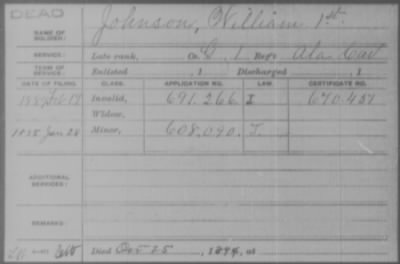 DEAD
NAME OF SOLDIER: Johnson, William 1st.
SERVICE: Late rank, Co. G, 1 Reg't Ala Cav
TERM OF SERVICE: Enlisted , 1 Discharged , 1
DATE OF FILING. CLASS. APPLICATION NO. LAW. CERTIFICATE NO.
Invalid, 691.266 I 670.457
Widow,
Jan 28 Minor, 608.090. I.
ADDITIONAL SERVICES:
REMARKS:
Died Oct 25, 1894, at